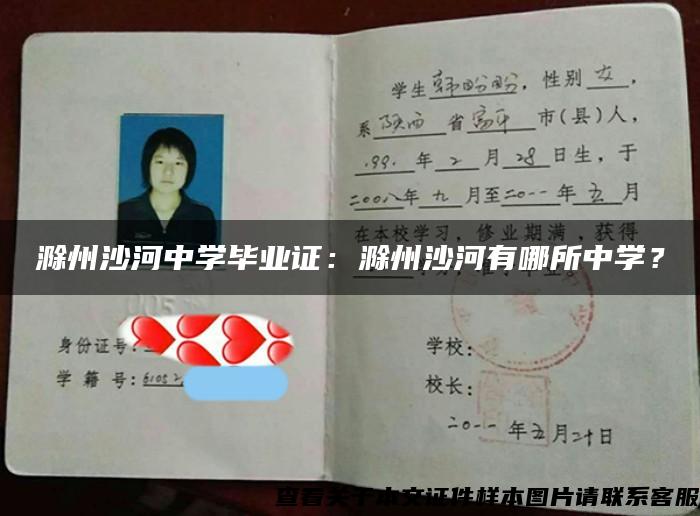 学生韩盼盼，性别女，
系陕西省富平市(县)人，
199.年2月28日生，于
二00八年九月至二0一一年五月
在本校学习，修业期满，获得
滁州沙河中学毕业证：滁州沙河有哪所中学？
身份证号：
学籍号：61052
学校：
校长：
二0一一年五月二十日
查看关于本文证件样本图片请联系客服